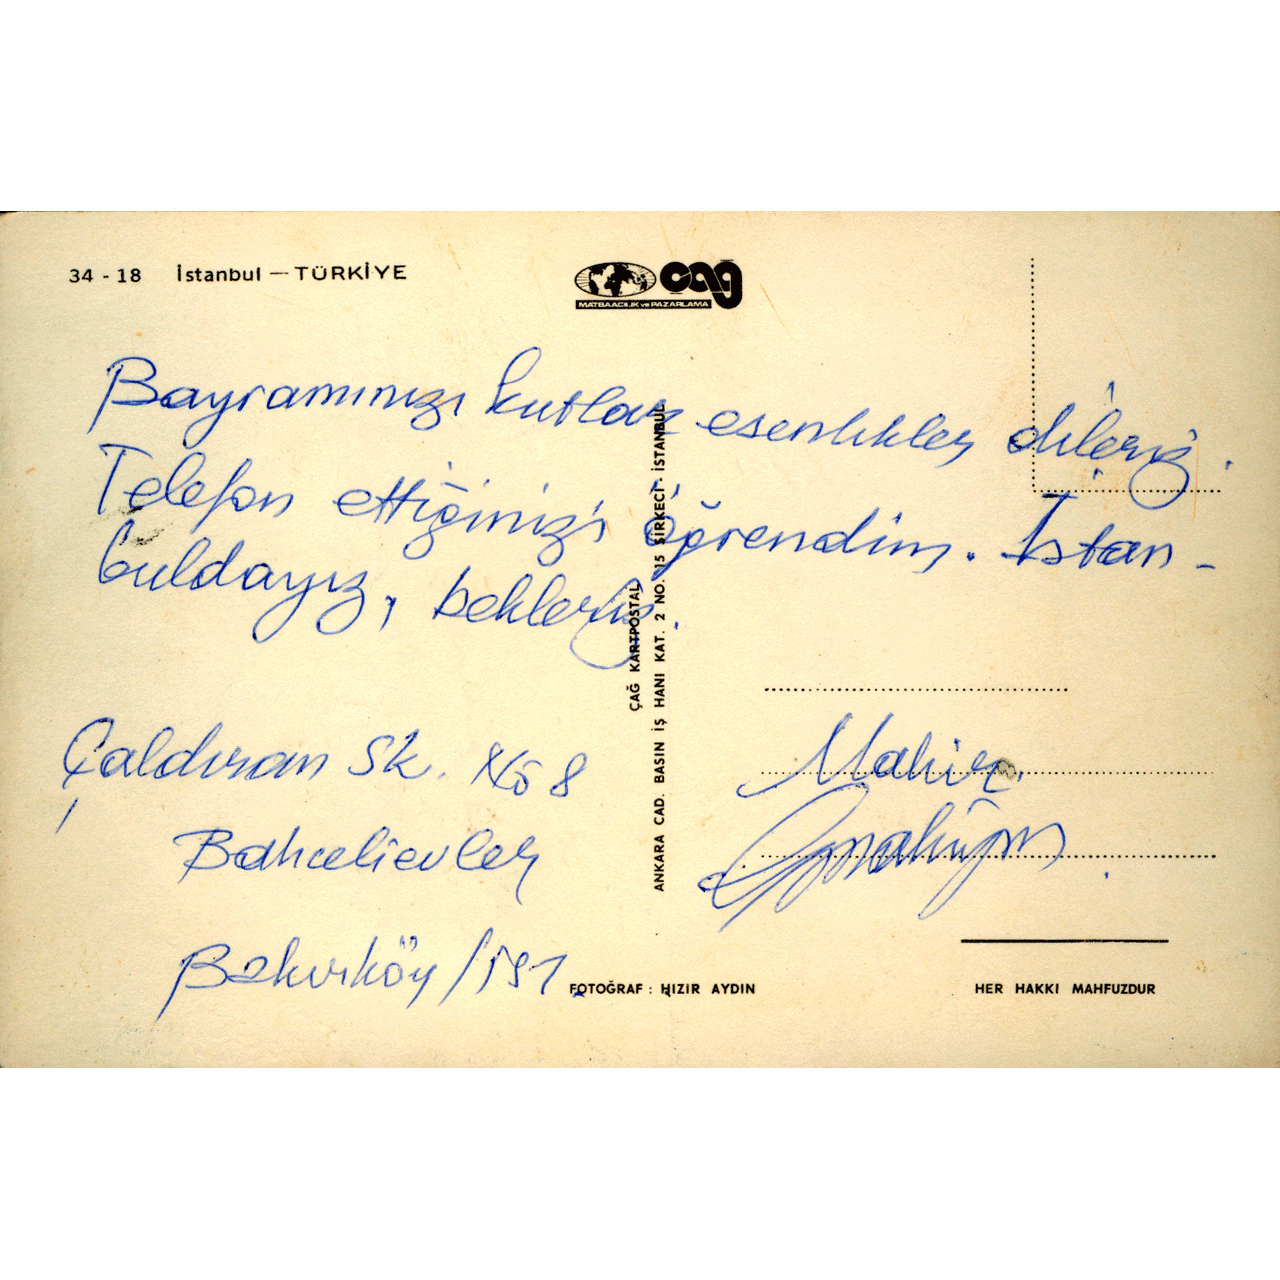 34 - 18 İstanbul — TÜRKİYE
çağ
MATBAACILIK ve PAZARLAMA
Bayramınızı kutlar esenlikler dileriz.
Telefon ettiğinizi öğrendim. İstan-
buldayız, bekleriz.
Çaldıran Sk. No 8
Bahcelievler
Bakırköy / İST
Mahir
ÇAĞ KARTPOSTAL
ANKARA CAD. BASIN İŞ HANI KAT. 2 NO. 15 SİRKECİ - İSTANBUL
FOTOĞRAF : HIZIR AYDIN
HER HAKKI MAHFUZDUR